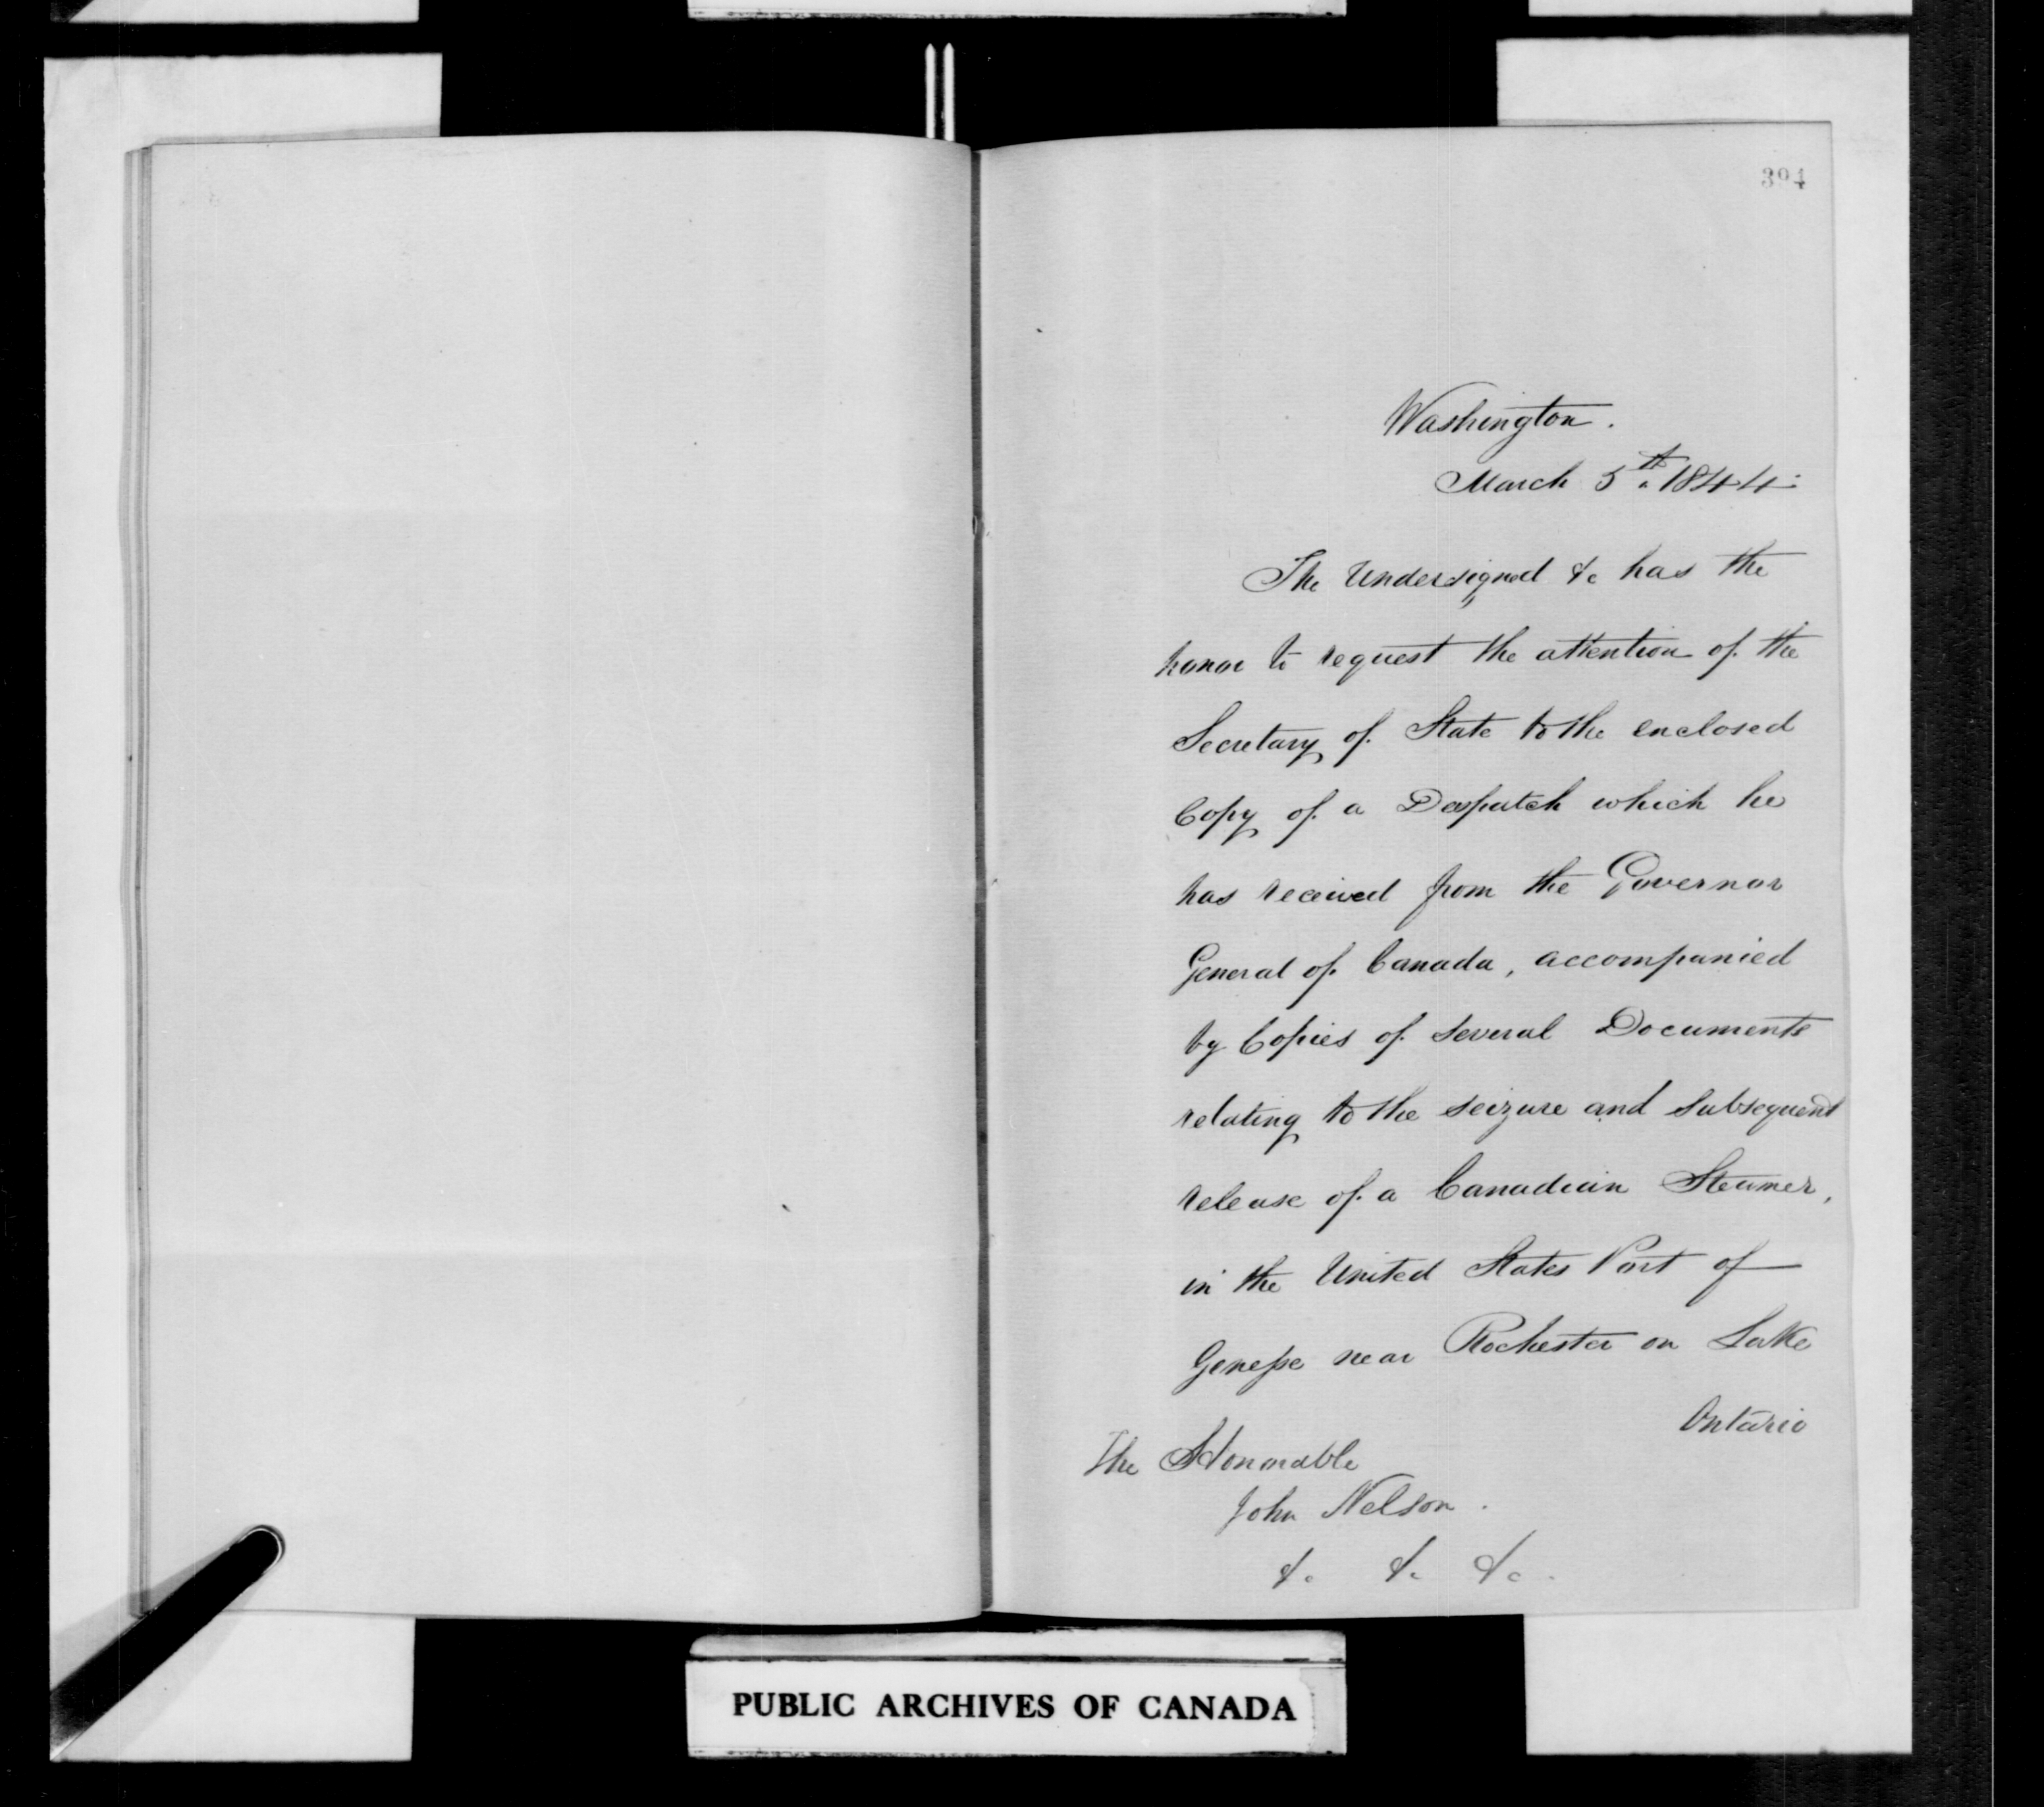 394
Washington.
March 5th. 1844.
The Undersigned &c has the
honor to request the attention of the
Secretary of State to the enclosed
Copy of a Despatch which he
has received from the Governor
General of Canada, accompanied
by Copies of several Documents
relating to the seizure and subsequent
release of a Canadian Steamer,
in the United States Port of
Genesse near Rochester on Lake
Ontario
The Honorable
John Nelson.
&c &c &c.
PUBLIC ARCHIVES OF CANADA